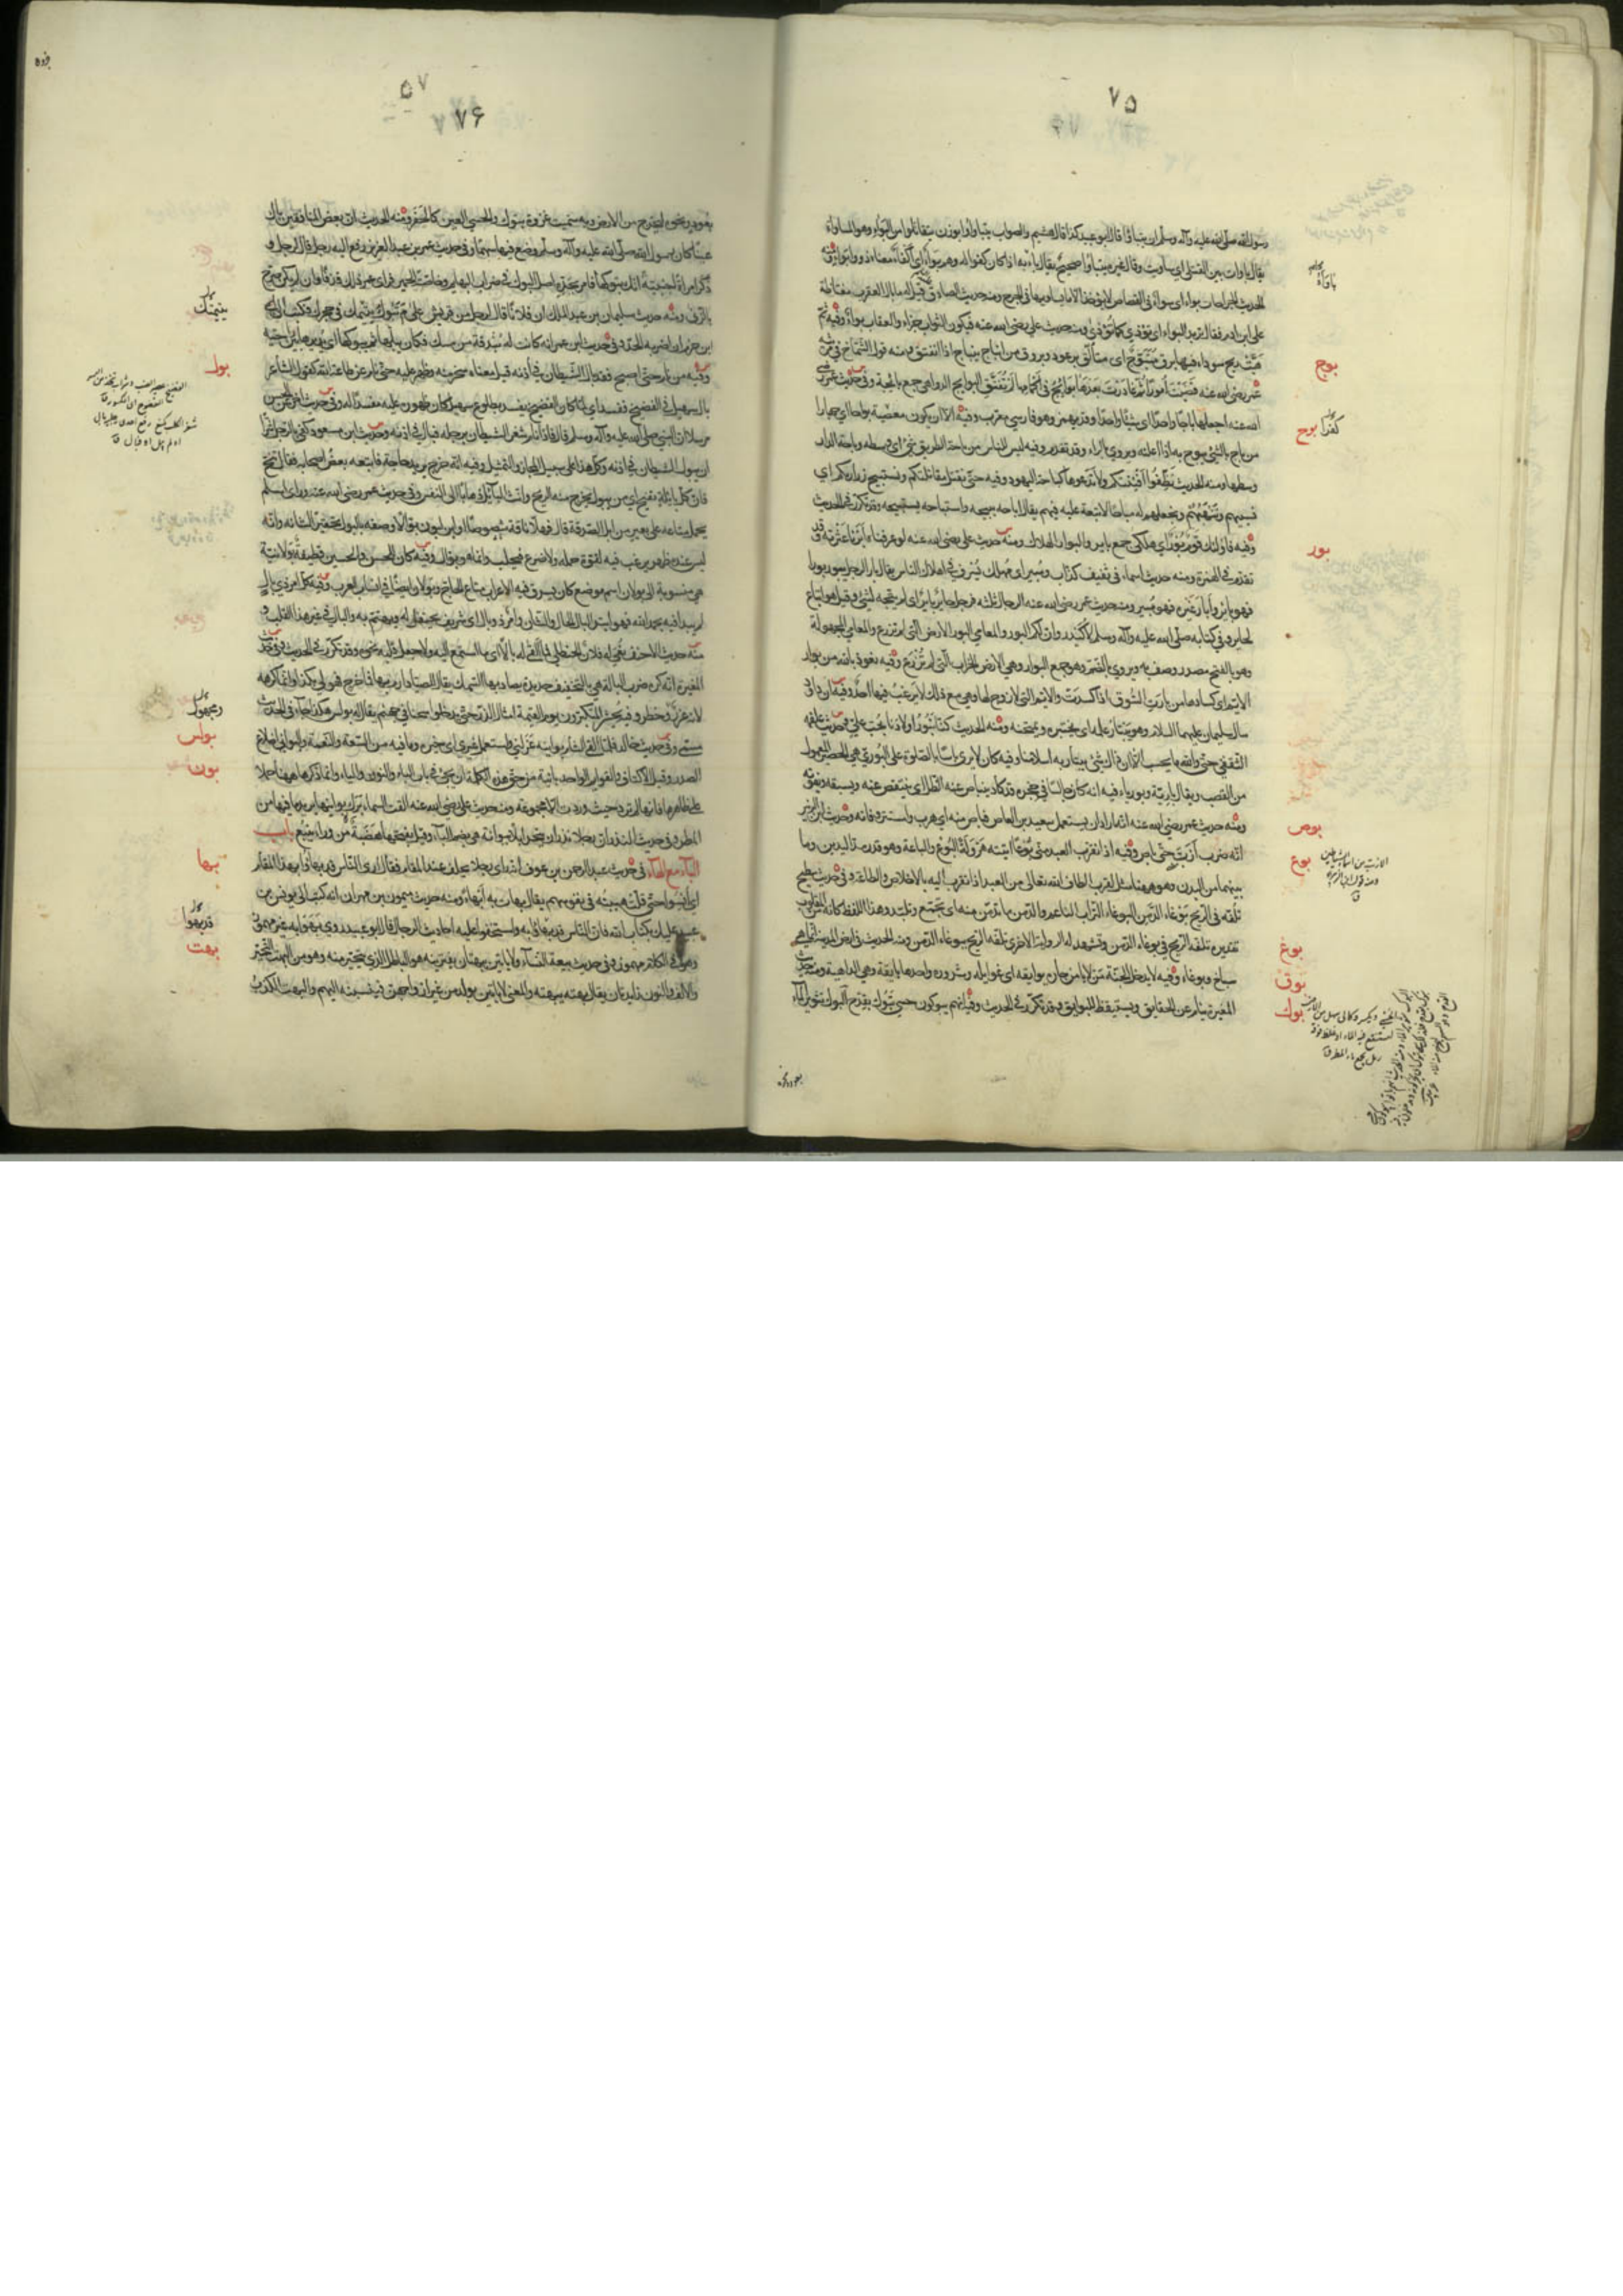 ٧٥
رسول الله صلى الله عليه وآله وسلم ان يتباؤا قال ابو عبيد كذا قال هشيم والصواب يتباوأوا بوزن يتقاتلوا من البواء وهو المساواة
يقال باوأت بين القتلى اي ساويت وقال غيره يتباؤا صحيح يقال باء به اذا كان كفوا له وهم بواء اي اكفاء معناه ذوو بواء
الحديث الجراحات بواء اي سواء في القصاص لا يؤخذ الا ما يساويها في الجرح ومنه حديث الصادق قيل له ما بال العقرب مغتاظة
على ابن ادم فقال تريد البواء اي تؤذي كما تؤذى ومنه حديث علي رضي الله عنه فيكون الثواب جزاء والعقاب بواء وفيه ثم
هبت ريح سوداء فيها برق متبوج اي متألق برعود وبروق من انباج ينباج اذا انفتق ومنه قول الشماخ في مرثية
عمر رضي الله عنه قضيت امورا ثم غادرت بعدها بوائج في اكمامها لم تفتق البوائج الدواهي جمع بائجة وفي حديث عمر رضي
الله عنه اجعلها باجا واحدا اي شيئا واحدا وقد يهمز وهو فارسي معرب وفيه الا ان يكون معصية بواحا اي جهارا
من باح بالشيء يبوح به اذا اعلنه ويروى بالراء وقد تقدم وفيه ليس للنساء من باحة الطريق شيء اي وسطه وباحة الدار
وسطها ومنه الحديث نظفوا افنيتكم ولا تدعوها كباحة اليهود وفيه حتى نقتل مقاتلتكم ونستبيح ذراريكم اي
نسبيهم وننهبهم ونجعلهم له مباحا لا تبعة عليه فيهم يقال اباحه يبيحه واستباحه يستبيحه وقد تكرر في الحديث
وفيه فاولئك قوم بور اي هلكى جمع باير والبوار الهلاك ومنه حديث علي رضي الله عنه لو عرفناه ابرنا عترته وقد
تقدم في الهمزة ومنه حديث اسماء في ثقيف كذاب ومبير اي مهلك يسرف في اهلاك الناس يقال بار الرجل يبور بورا
فهو باير وابار غيره فهو مبير ومنه حديث عمر رضي الله عنه الرجال ثلثة فرجل حاير باير اي لم يتجه لشيء وقيل هو اتباع
لحاير وفي كتابه صلى الله عليه وآله وسلم لاكيدر وان لكم البور والمعامي البور الارض التي لم تزرع والمعامي المجهولة
وهو بالفتح مصدر وصف به ويروى بالضم وهو جمع البوار وهي الارض الخراب التي لم تزرع وفيه نعوذ بالله من بوار
الايم اي كسادها من بارت السوق اذا كسدت والايم التي لا زوج لها وهي مع ذلك لا يرغب فيها احد وفيه ان داود
سال سليمان عليهما السلام وهو يبتار علمه اي يختبره ويمتحنه ومنه الحديث كنا نبور اولادنا بحب علي وفي حديث علقمة
الثقفي حتى والله ما يحسب الا ان ذلك شيء يبتار به اسلامنا وفيه كان لا يرى باسا بالصلوة على البوري هي الحصير المعمول
من القصب ويقال بارية وبورياء فيه انه كان جالسا في حجرة قد كاد ينباص عنه الظل اي ينتقص عنه ويسبقه ويفوته
ومنه حديث عمر رضي الله عنه انه اراد ان يستعمل سعيد بن العاص فباص منه اي هرب واستتر وفاته وحديث ابن الزبير
انه ضرب ازب حتى باص وفيه اذا تقرب العبد مني بوعا اتيته هرولة البوع والباعة وهو قدر مد اليدين وما
بينهما من البدن وهو ههنا مثل لقرب الطاف الله تعالى من العبد اذا تقرب اليه بالاخلاص والطاعة وفي حديث سطيح
تلفه في الريح بوغاء الدمن البوغاء التراب الناعم والدمن ما تدمن منه اي تجمع وتلبد وهذا اللفظ كانه من المقلوب
تقديره تلفه الريح في بوغاء الدمن وتشهد له الرواية الاخرى تلفه الريح ببوغاء الدمن ومنه الحديث في ارض المدينة انما هي
سباخ وبوغاء وفيه لا يدخل الجنة من لا يامن جاره بوايقه اي غوايله وشروره واحدها بايقة وهي الداهية ومنه حديث
المغيرة ينام عن الحقايق ويستيقظ للبوايق وقد تكرر في الحديث وفيه انهم يبوكون حسي تبوك بقدح البوك تثوير الماء
بوج
بوح
بور
بوص
بوع
بوغ
بوق
بوك
٥٧
٧٦
بعود ونحوه ليخرج من الارض وبه سميت غزوة تبوك والحسي العين كالحفر ومنه الحديث ان بعض المنافقين باك
عينا كان رسول الله صلى الله عليه وآله وسلم وضع فيها سهما وفي حديث عمر بن عبد العزيز رفع اليه رجل قال لرجل و
ذكر امراة اجنبية انك تبوكها فامر بحده اصل البوك في ضراب البهايم وخاصة الحمير فراى عمر ذلك قذفا وان لم يكن صرح
بالزنا ومنه حديث سليمان بن عبد الملك ان فلانا قال لرجل من قريش علام تبوك يتيمتك في حجرك فكتب الى
ابن حزم ان اضربه الحد وفي حديث ابن عمر انه كانت له بندقة من مسك فكان يبلها ثم يبوكها اي يديرها بين راحتيه
وفيه من نام حتى اصبح فقد بال الشيطان في اذنه قيل معناه سخر منه وظهر عليه حتى نام عن طاعة الله كقول الشاعر
بال سهيل في الفضيخ ففسد اي لما كان الفضيخ يفسد بطلوع سهيل كان ظهوره عليه مفسدا له وفي حديث اخر عن الحسن
مرسلا ان النبي صلى الله عليه وآله وسلم قال فاذا نام شغر الشيطان برجله فبال في اذنه وحديث ابن مسعود كفى بالرجل شرا
ان يبول الشيطان في اذنه وكل هذا على سبيل المجاز والتمثيل وفيه انه خرج يريد حاجة فاتبعه بعض اصحابه فقال تنح
فان كل بايلة تفيخ اي من يبول يخرج منه الريح وانث البايل ذهابا الى النفس وفي حديث عمر رضي الله عنه وراى اسلم
يحمل متاعه على بعير من ابل الصدقة قال فهلا ناقة شصوصا او ابن لبون بوالا وصفه بالبول تحقيرا لشانه وانه
ليس عنده ظهر يرغب فيه لقوة حمله ولا ضرع فيحلب وانما هو بوال وفيه كان للحسن والحسين قطيفة بولانية
هي منسوبة الى بولان اسم موضع كان يسرق فيه الاعراب متاع الحاج وبولان ايضا في انساب العرب وفيه كل امر ذي بال
لم يبدا فيه بحمد الله فهو ابتر البال الحال والشان وامر ذو بال اي شريف يحتفل له ويهتم به والبال في غير هذا القلب و
منه حديث الاحنف نعي له فلان الحنظلي فما القى له بالا اي ما استمع اليه ولا جعل قلبه نحوه وقد تكرر في الحديث وفي حديث
المغيرة انه كره ضرب البالة هي بالتخفيف حديدة يصاد بها السمك يقال للصياد ارم بها فما خرج فهو لي بكذا وانما كرهه
لانه غرر وخطر وفيه يحشر المتكبرون يوم القيمة امثال الذر حتى يدخلوا سجنا في جهنم يقال له بولس هكذا جاء في الحديث
مسمى وفي حديث خالد فلما القى الشام بوانيه عزلني واستعمل غيري اي خيره وما فيه من السعة والنعمة والبواني اضلاع
الصدر وقيل الاكتاف والقوايم الواحدة بانية من حق هذه الكلمة ان تجيء في باب الباء والنون والياء وانما ذكرناها ههنا حملا
على ظاهرها فانها لم ترد حيث وردت الا مجموعة ومنه حديث علي رضي الله عنه القت السماء برك بوانيها يريد ما فيها من
المطر وفي حديث النذر ان رجلا نذر ان ينحر ابلا ببوانة هي بضم الباء وقيل بفتحها هضبة من وراء ينبع باب
الباء مع الهاء في حديث عبد الرحمن بن عوف انه راى رجلا يحلف عند المقام فقال ارى الناس قد بهأوا بهذا المقام
اي انسوا حتى قلت هيبته في نفوسهم يقال بهأت به ابهأ ومنه حديث ميمون بن مهران انه كتب الى يونس بن
عبيد عليك بكتاب الله فان الناس قد بهأوا به واستخفوا عليه احاديث الرجال قال ابو عبيد روي بهوا به غير مهموز
وهو في الكلام مهموز وفي حديث بيعة النساء ولا ياتين ببهتان يفترينه هو الباطل الذي يتحير منه وهو من البهت التحير
والالف والنون زايدتان يقال بهته يبهته والمعنى لا ياتين بولد من غير ازواجهن فينسبنه اليهم والبهت الكذب
يتيمتك
بول
بولس
بون
بها
بهت